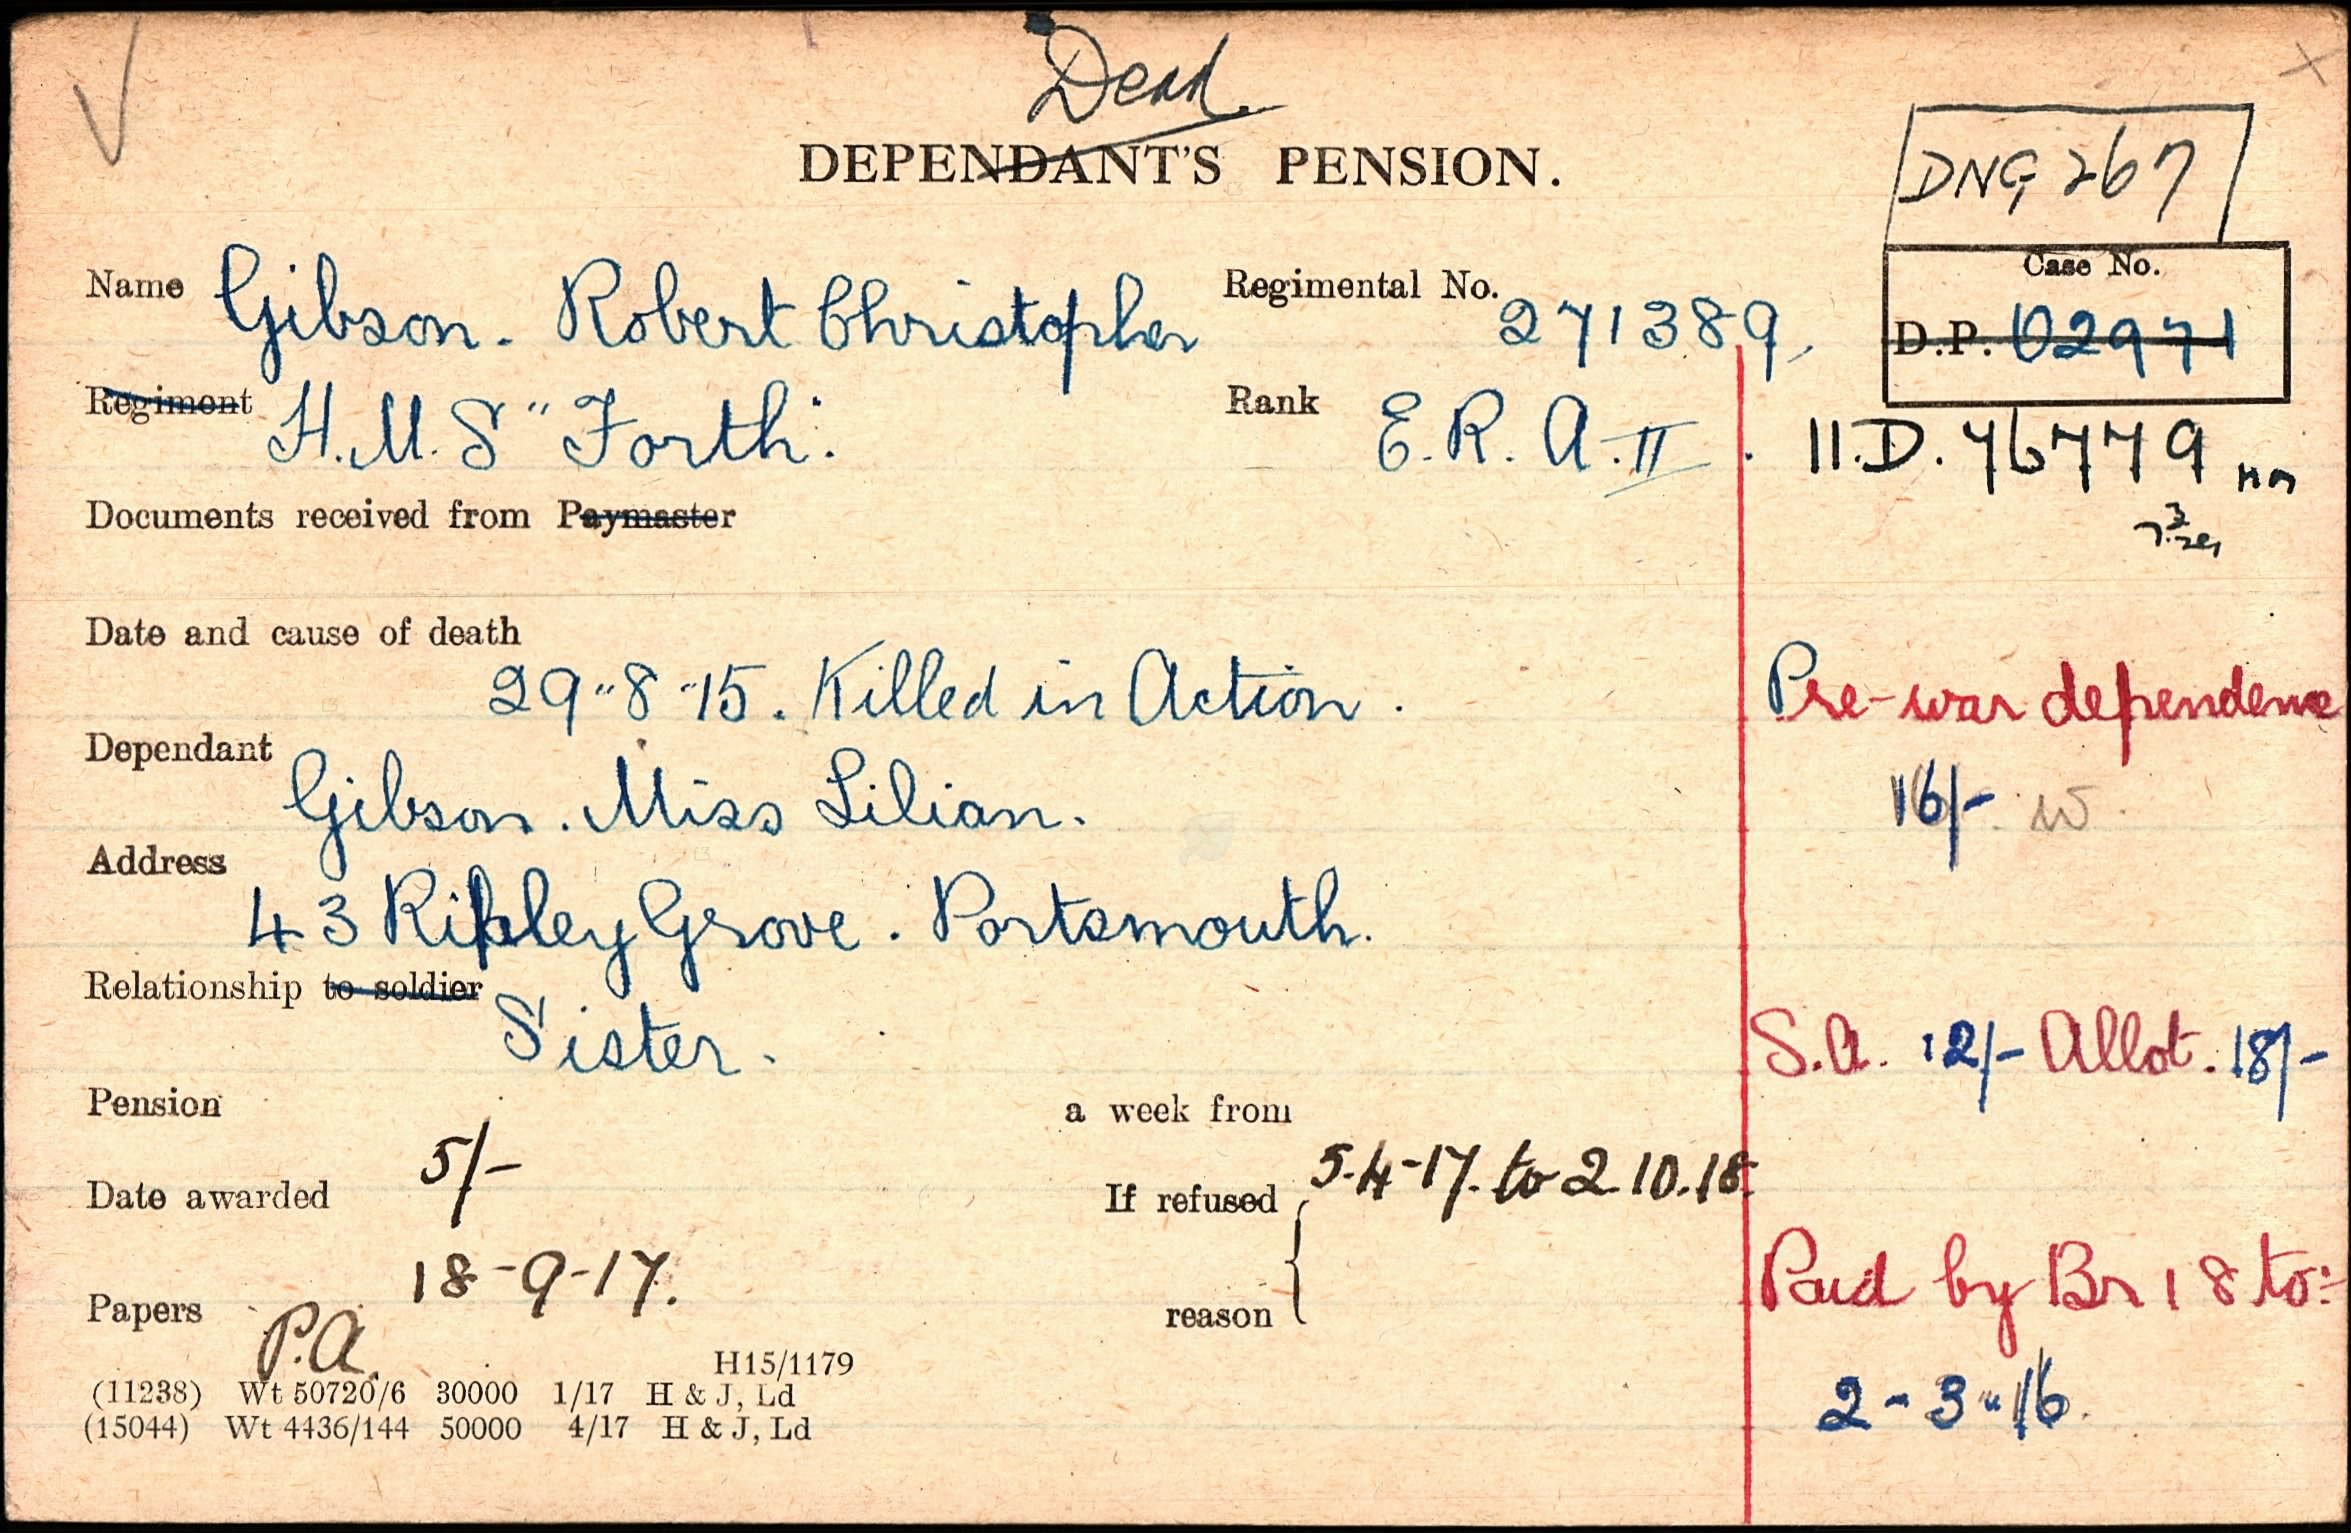 Dead.
DEPENDANT'S PENSION.
DNG 267
Case No.
Name Gibson. Robert Christopher Regimental No. 271389, D.P. 02971
Regiment H.M.S "Forth". Rank E.R.A. II. 11.D. 76779
Documents received from Paymaster
Date and cause of death
29-8-15. Killed in Action. Pre-war dependence
Dependant
Gibson. Miss Lilian. 16/- w.
Address
43 Ripley Grove. Portsmouth.
Relationship to soldier
Sister. S.A. 12/- Allot. 18/-
Pension a week from
5/- 5-4-17. to 2.10.18.
Date awarded If refused
18-9-17. Paid by Br 18 to:-
Papers P.A. reason
H15/1179
2-3-16.
(11238) Wt 50720/6 30000 1/17 H & J, Ld
(15044) Wt 4436/144 50000 4/17 H & J, Ld